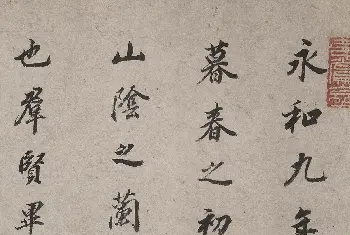 永和九年
暮春之初
山陰之蘭
也羣賢畢